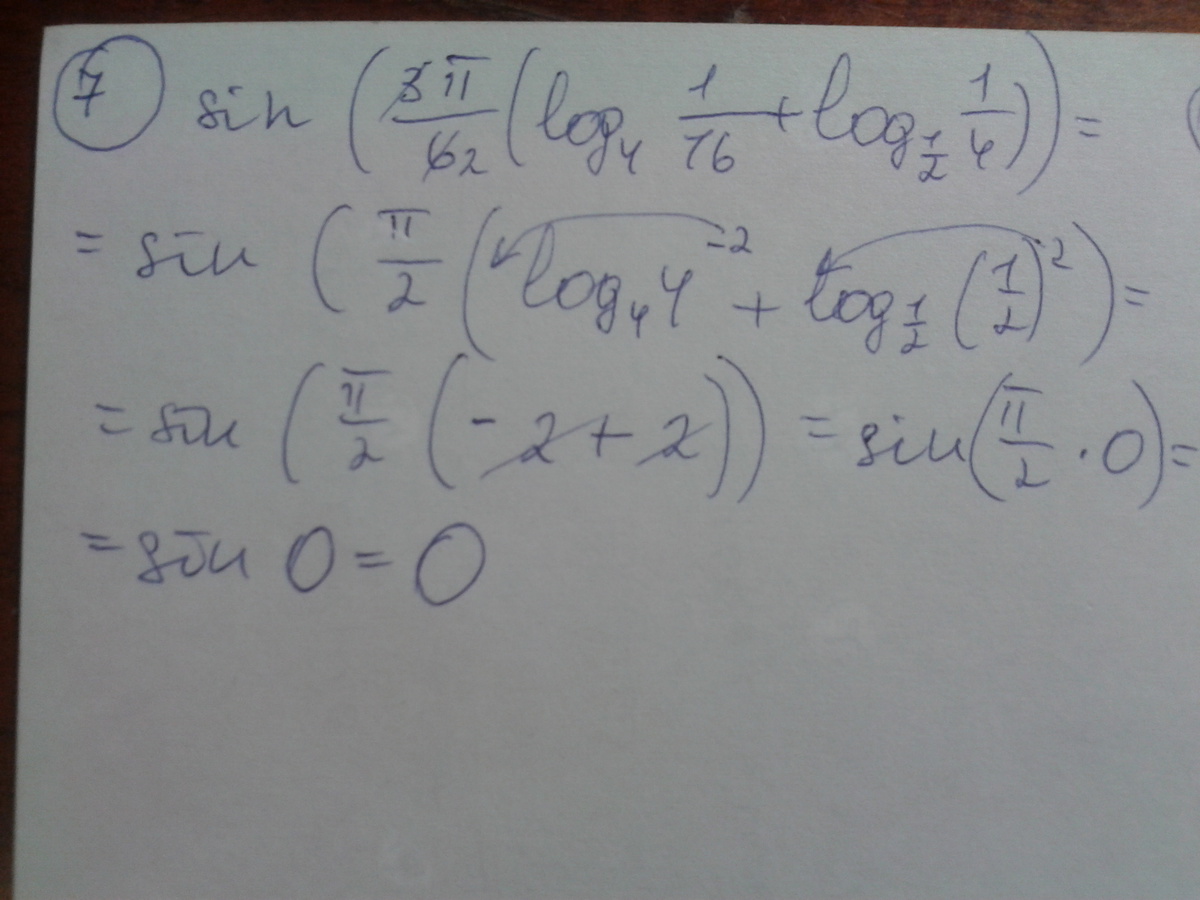 7 sin (3π/62 (log₄ 1/16 + log_{1/2} 1/4)) =
= sin (π/2 (log₄ 4⁻² + log_{1/2} (1/2)²) =
= sin (π/2 (-2 + 2)) = sin (π/2 · 0) =
= sin 0 = 0